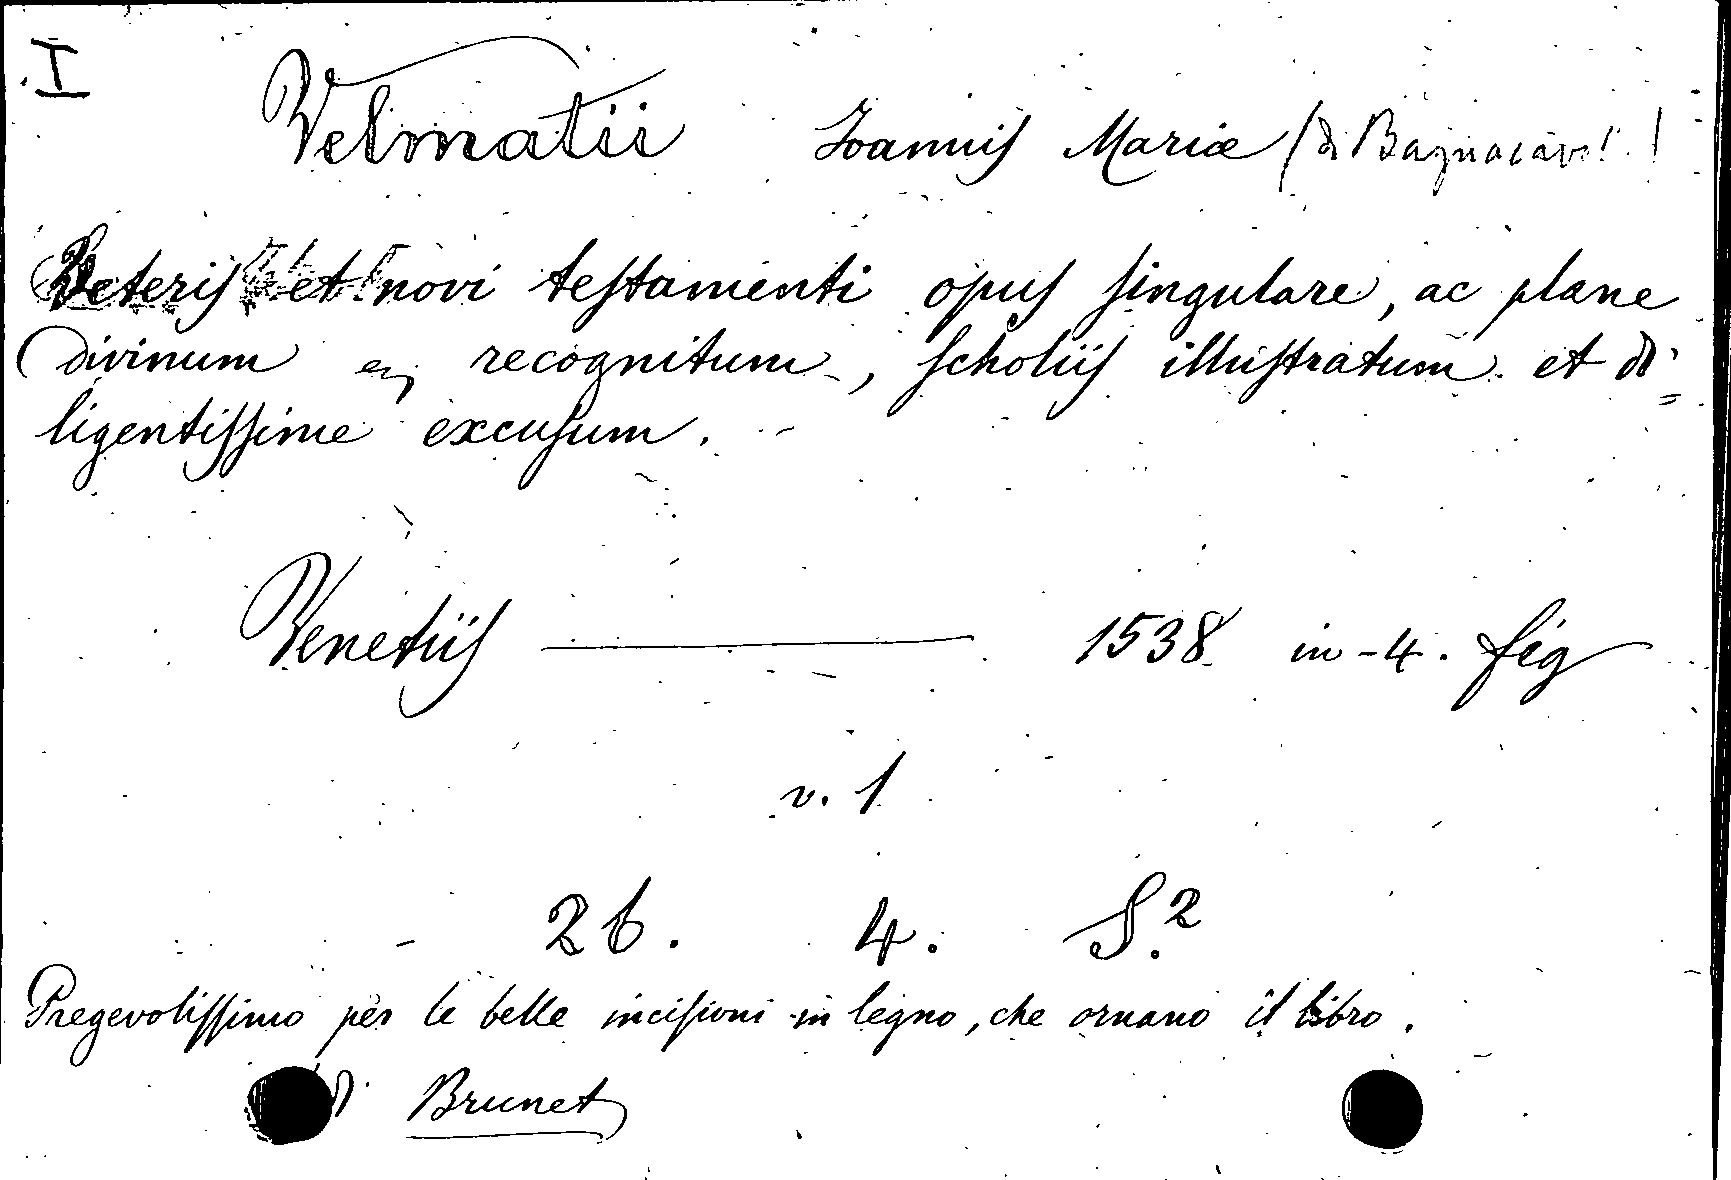 I
Velmatii Ioannis Mariæ (di Bagnacav
Veteris et novi testamenti opus singulare, ac plane
divinum recognitum, scholiis illustratum et di=
ligentissime excusum.
Venetiis — 1538 in-4. fig
v. 1
26. 4. S.²
Pregevolissimo per le belle incisioni in legno, che ornano il libro.
Brunet